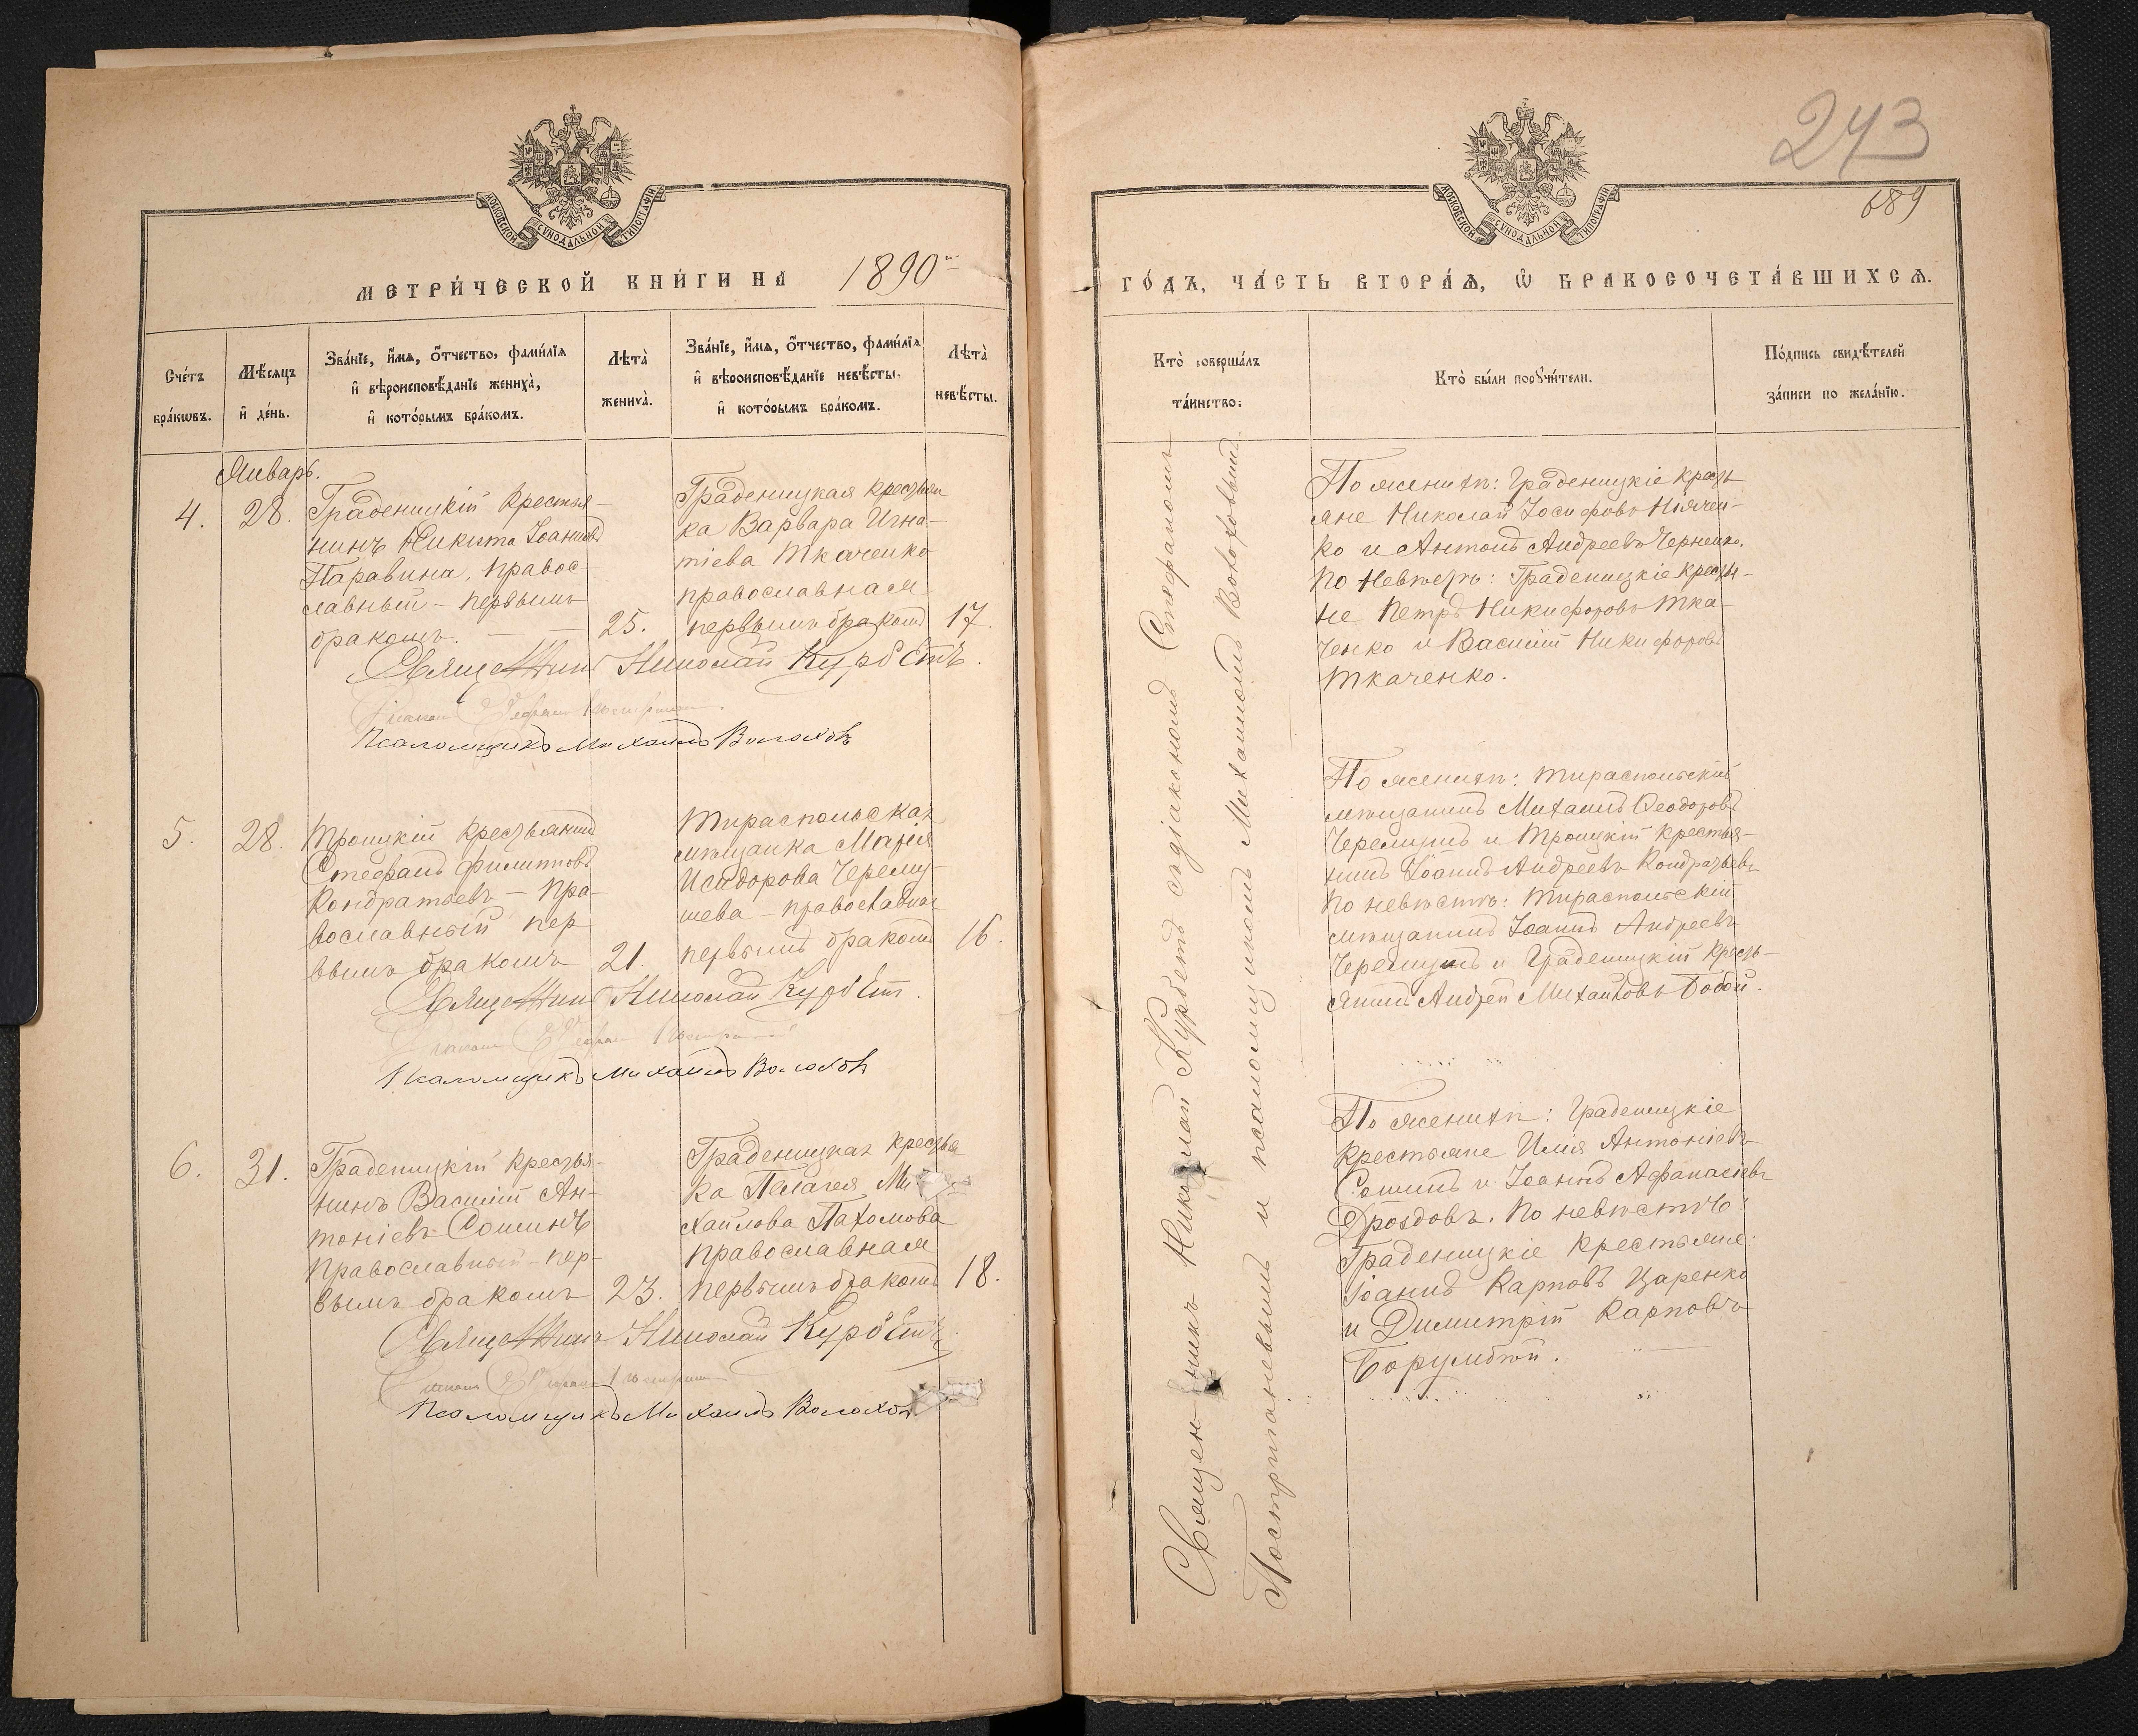 МОСКОВСКОЙ СѴНОДАЛЬНОЙ ТИПОГРАФІИ
МЕТРИ́ЧЕСКОЙ КНИ́ГИ НА 1890
Сче́тъ бра́кѡвъ.
Мѣ́сяцъ и҆ де́нь.
Зва́нїе, и҆́мѧ, ѻ҆́тчество, фами́лїѧ
и҆ вѣроисповѣ́данїе жениха̀,
и҆ кото́рымъ бра́комъ.
Лѣта̀ жениха̀.
Зва́нїе, и҆́мѧ, ѻ҆́тчество, фами́лїѧ
и҆ вѣроисповѣ́данїе невѣ́сты,
и҆ кото́рымъ бра́комъ.
Лѣта̀ невѣ́сты.
Январь.
4.
28.
Граденицкій крестья-
нинъ Никита Іоанновъ
Паравина, правос-
лавный – первымъ
бракомъ. — —
25.
Граденицкая крестьян
ка Варвара Игна-
тіева Ткаченко
православная
первымъ бракомъ
17.
Священникъ Николай Курбетъ.
Псаломщикъ Михаилъ Волоховъ
5.
28.
Троицкій крестьянинъ
Стефанъ Филипповъ
Кондратьевъ – пра-
вославный пер
вымъ бракомъ
21.
Тираспольская
мѣщанка Марія
Исидорова Черему-
шева – православная
первымъ бракомъ
16.
Священникъ Николай Курбетъ.
Псаломщикъ Михаилъ Волоховъ
6.
31.
Граденицкій крестья-
нинъ Василій Ан-
тоніевъ Сошинъ
православный – пер-
вымъ бракомъ
23.
Граденицкая крестья
ка Пелагея Ми
хайлова Пахомова
православная
первымъ бракомъ
18.
Священникъ Николай Курбетъ
Псаломщикъ Михаилъ Волоховъ
243
689
МОСКОВСКОЙ СѴНОДАЛЬНОЙ ТИПОГРАФІИ
ГО́ДЪ, ЧА́СТЬ ВТОРА́Ѧ, Ѡ҆ БРАКОСОЧЕТА́ВШИХСѦ.
Кто̀ соверша́лъ
та́инство.
Кто̀ бы́ли порꙋчи́тели.
По́дпись свидѣ́телей
за́писи по жела́нїю.
Священникъ Николай Курбетъ съ діакономъ Стефаномъ
Постригановымъ и псаломщикомъ Михаиломъ Волоховымъ.
По женихѣ: Граденицкіе кресть
яне Николай Іосифовъ
ко и Антонъ Андреевъ Черненко.
По невѣстѣ: Граденицкіе крестья-
не Петръ Никифоровъ Тка-
ченко и Василій Никифоровъ
Ткаченко.
По женихѣ: Тираспольскій
мѣщанинъ Михаилъ Ѳеодоровъ
Черемушъ и Троицкій крестья-
нинъ Іоаннъ Андреевъ Кондратьевъ
По невѣстѣ: Тираспольскій
мѣщанинъ Іоаннъ Андреевъ
Черемушъ и Граденицкій кресть-
янинъ Андрей Михайловъ Бобой.
По женихѣ: Граденицкіе
крестьяне Илія Антоніевъ
Сошинъ и Іоаннъ Афанасіевъ
Дроздовъ. По невѣстѣ:
Граденицкіе крестьяне:
Іоаннъ Карповъ Царенко
и Димитрій Карповъ